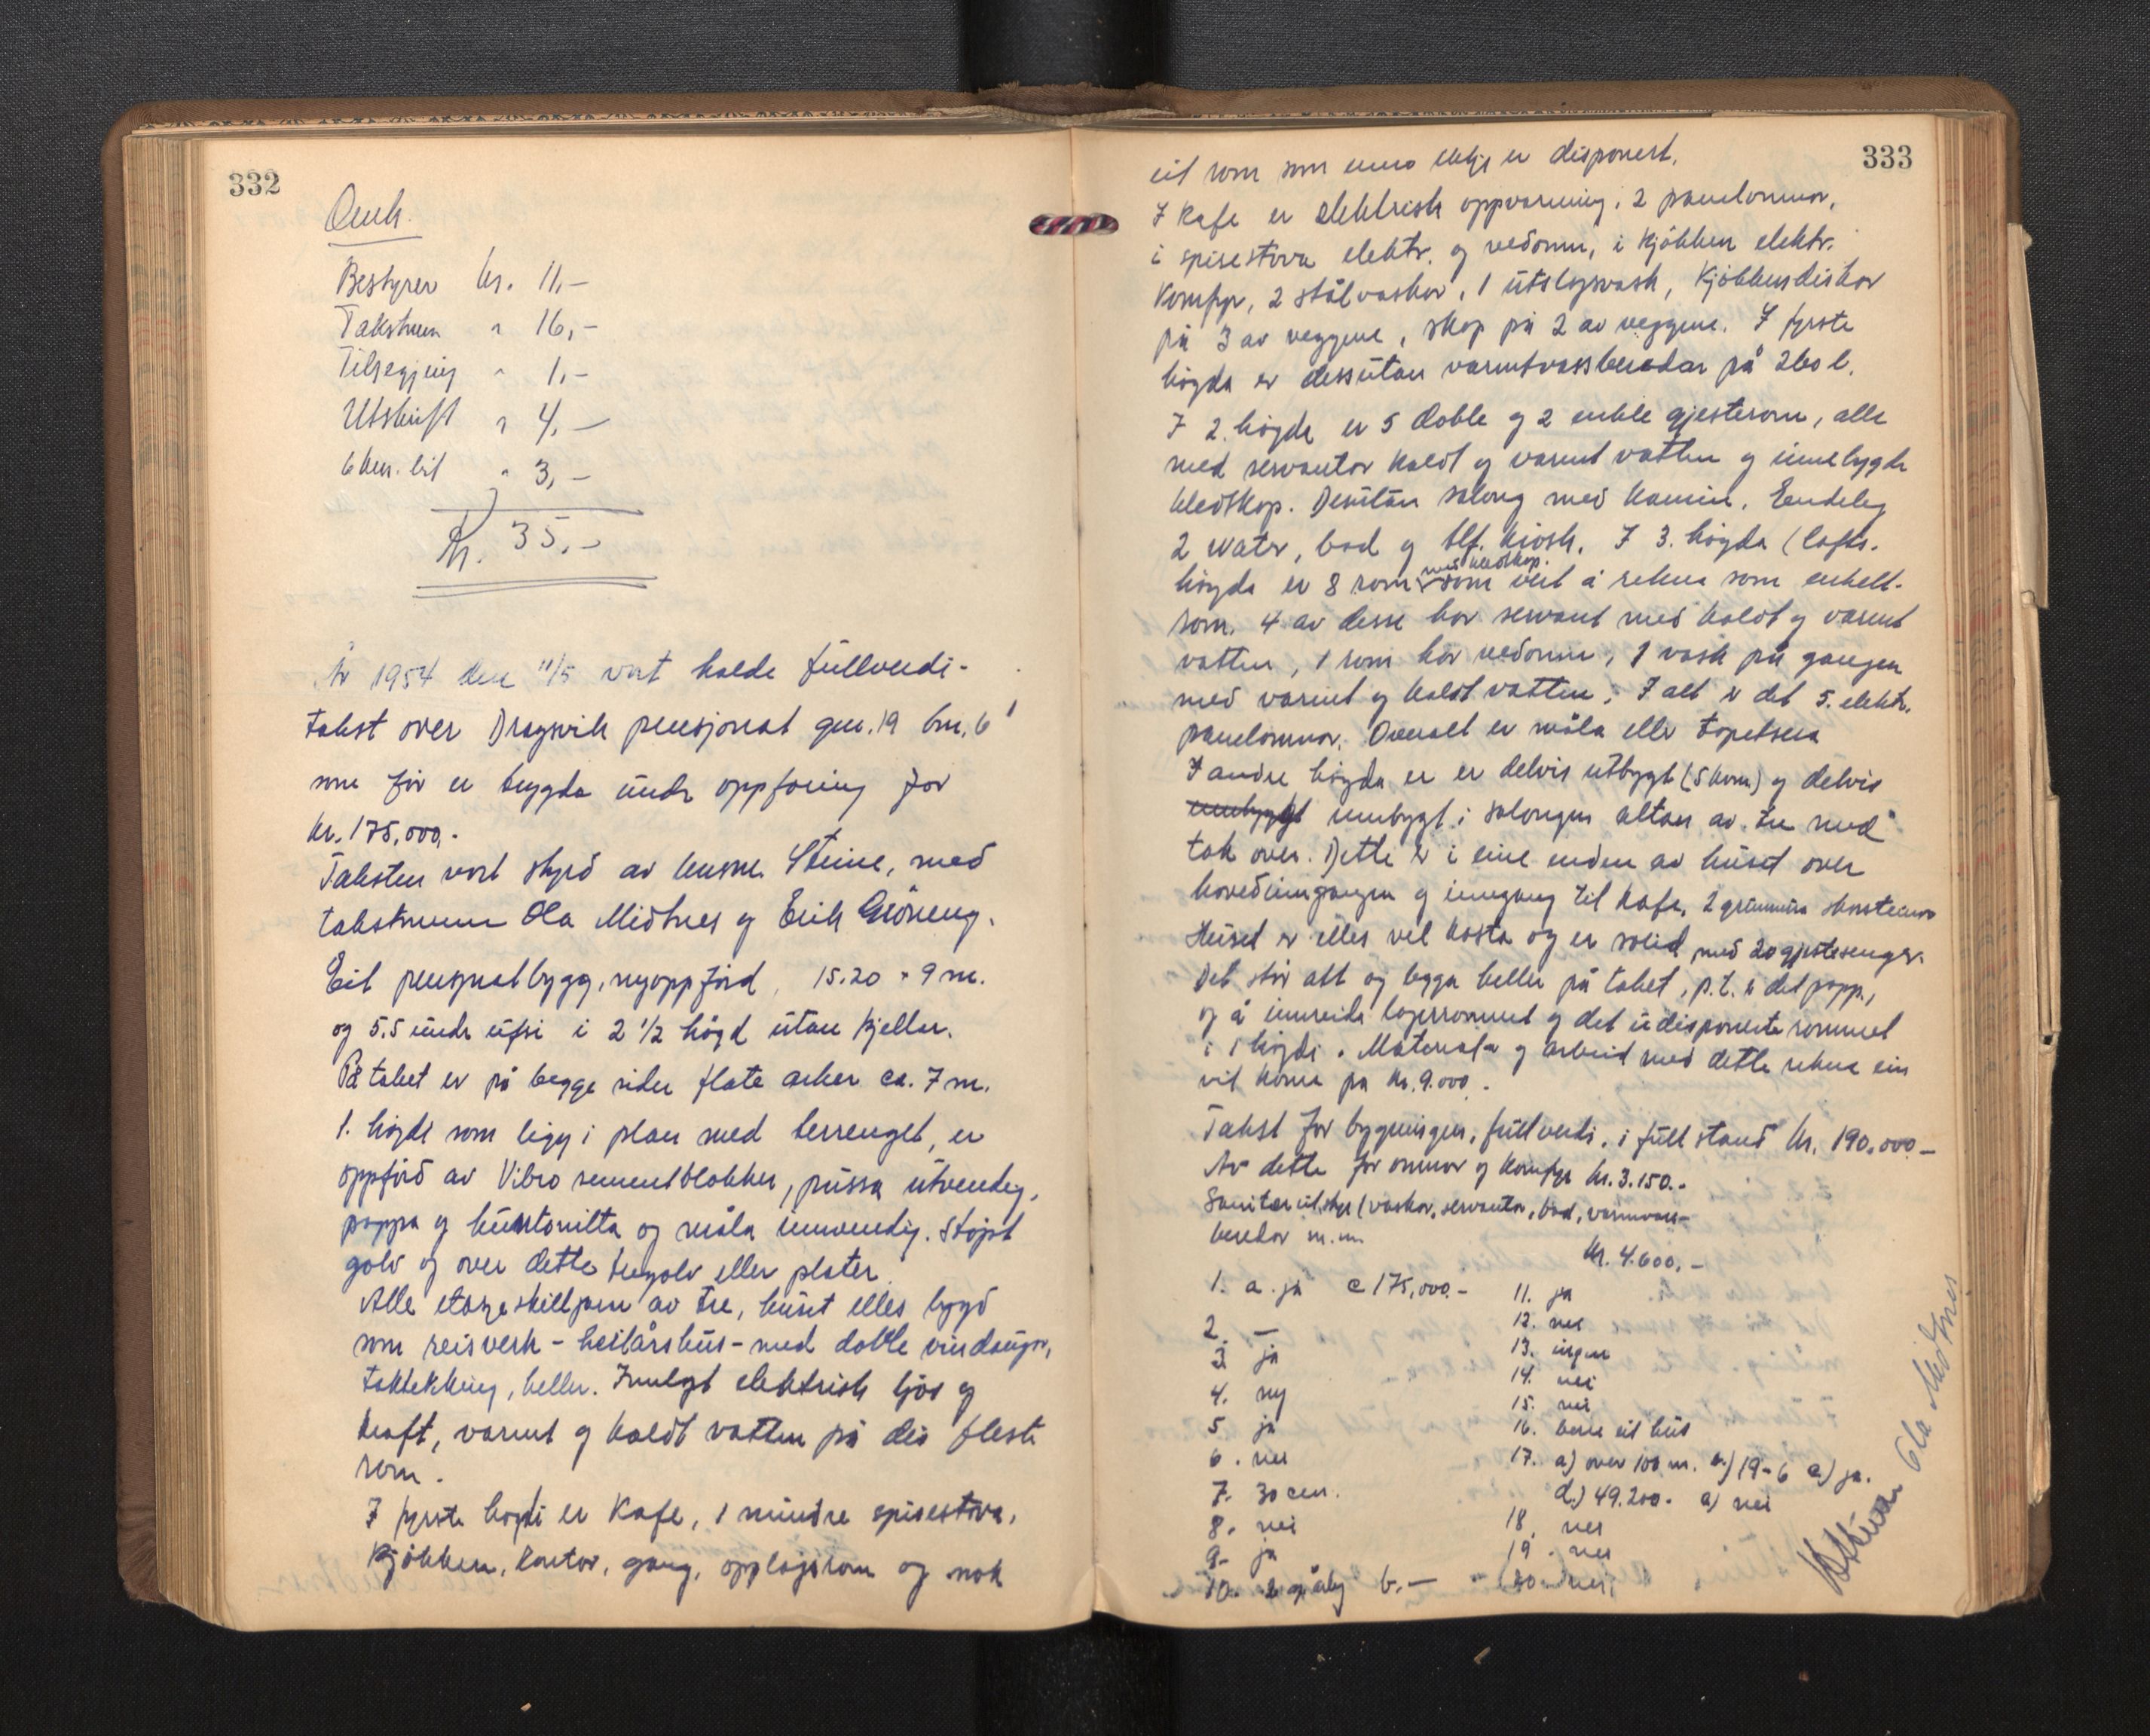 332
Omk.
Bestyrer kr. 11,-
Takstmenn " 16,-
Tilsegjing " 1,-
Utskrift " 4,-
6 km. bil " 3,-
Kr. 35,-
År 1954 den 11/5 vart halde fullverdi-
takst over Dragsvik pensjonat gnr. 19 bnr. 6
som før er trygda under oppføring for
kr. 175.000,-
Taksten vart styrd av lensm. Steine, med
takstmenn Ola Midtnes og Erik Grøneng.
Eit pensjonatbygg, nyoppførd, 15.20 × 9 m.
og 5.5 under ufsi i 2 1/2 høgd utan kjellar.
På taket er på begge sider flate arker ca. 7 m.
1. høgdi som ligg i plan med terrenget, er
oppførd av Vibro sementblokker, pussa utvendig,
pappa og huntonitta og måla innvendig. Støypt
golv og over dette tregolv eller plater.
Alle etasjeskilljarar av tre, huset elles bygd
som reisverk - heilårshus - med doble vindaugo,
taktekking, heller. Innlagt elektrisk ljos og
kraft, varmt og kaldt vatten på dei fleste
rom.
I fyrste høgdi er Kafe, 1 mindre spisestova,
kjøkken, kontor, gang, opplagsrom og nok
333
eit rom som enno ikkje er disponert.
I Kafe er elektrisk oppvarming, 2 panelomnar,
i spisestova elektr. og vedomn, i kjøkken elektr.
komfyr, 2 stålvaskar, 1 utslagsvask, kjøkkendiskar
på 3 av veggene, skap på 2 av veggene. I fyrste
høgda er dessutan varmtvassberedar på 260 l.
I 2. høgda er 5 doble og 2 enkle gjesterom, alle
med servantar kaldt og varmt vatten og innebygde
kledskap. Desutan salong med kamin. Endeleg
2 water, bad og tlf. kiosk. I 3. høgda (lofts-
høgda er 8 rom med kledskap. som vert å rekna som enkelt-
rom. 4 av desse har servant med kaldt og varmt
vatten, 1 rom har vedomn, 1 vask på gangen
med varmt og kaldt vatten. I alt er det 5. elektr.
panelomnar. Overalt er måla eller tapetsera
I andre høgda er er delvis utbygt (5 kvm.) og delvis
innbygt innbygt i salongen altan av tre med
tak over. Dette er i eine enden av huset over
hovedinngangen og inngang til kafe. 2 grunnmura skorsteinar
Huset er elles vel kosta og er solid med 20 gjestesenger.
Det står att og legga heller på taket, p.t. er det papp,
og å innreide lagerrommet og det udisponerte rommet
i 1 høgdi. Materiala og arbeid med dette rekna ein
vil koma på kr. 9.000.-
Takst for bygningen, fullverdi, i full stand kr. 190.000.-
Av dette for omnar og komfyr kr. 3.150.-
Sanitærutstyr (vaskar, servantar, bad, varmvass-
beredar m.m. kr. 4.600.-
1. a. ja c 175,000.-
2. —
3 ja
4. ny
5 ja
6. nei
7. 30 cm.
8. nei
9- ja
10. b. —
11. ja
12. nei
13. ingen
14. nei
15. nei
16. berre eit hus
17. a) over 100 m. b.) 19-6 c) ja.
d.) 49.200.- a) nei
18. nei
19. nei
20. nei
Ola Midtnes